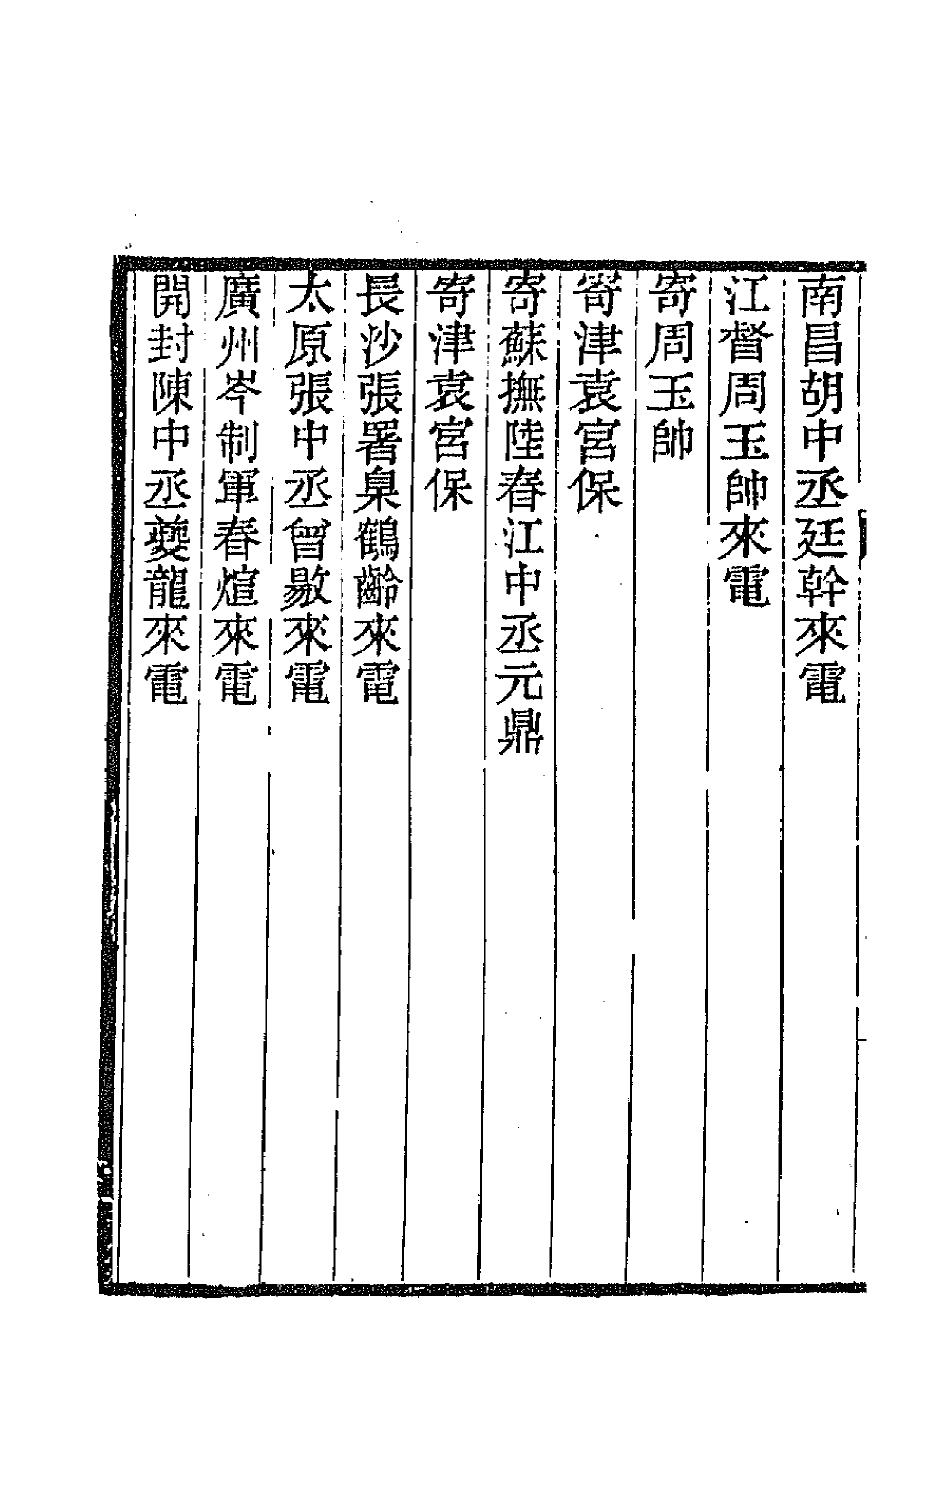 南昌胡中丞廷幹來電
江督周玉帥來電
寄周玉帥
寄津袁宮保
寄蘇撫陸春江中丞元鼎
寄津袁宮保
長沙張署臬鶴齡來電
太原張中丞曾敭來電
廣州岑制軍春煊來電
開封陳中丞夔龍來電